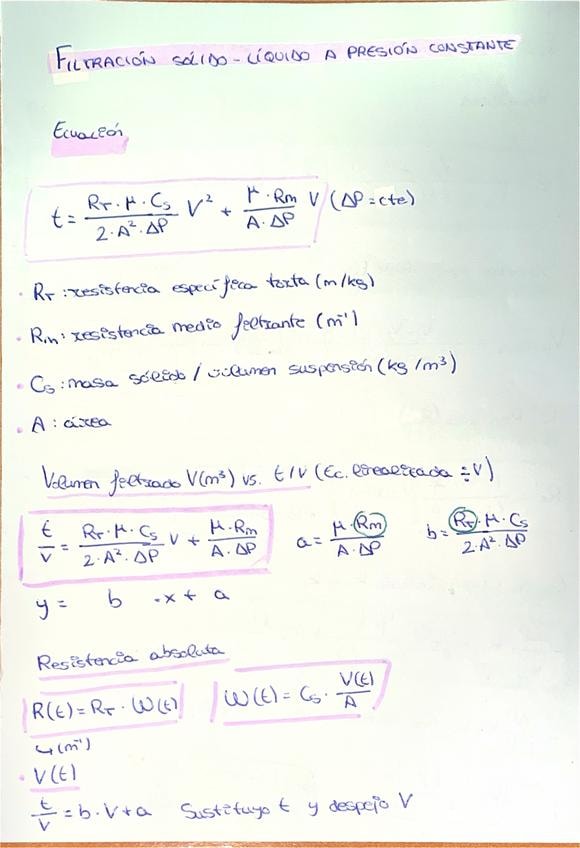 FILTRACIÓN SÓLIDO-LÍQUIDO A PRESIÓN CONSTANTE
Ecuación
t = (R_T · μ · C_S)/(2 · A² · ΔP) V² + (μ · R_m)/(A · ΔP) V (ΔP = cte)
· R_T : resistencia específica torta (m/kg)
· R_m : resistencia medio filtrante (m⁻¹)
· C_S : masa sólido / volumen suspensión (kg/m³)
· A : área
Volumen filtrado V(m³) vs. t/V (Ec. linealizada ÷ V)
t/V = (R_T · μ · C_S)/(2 · A² · ΔP) V + (μ · R_m)/(A · ΔP) a = (μ · R_m)/(A · ΔP) b = (R_T · μ · C_S)/(2 · A² · ΔP)
y = b · x + a
Resistencia absoluta
R(t) = R_T · W(t) W(t) = C_S · V(t)/A
↳ (m⁻¹)
· V(t)
t/V = b · V + a Sustituyo t y despejo V